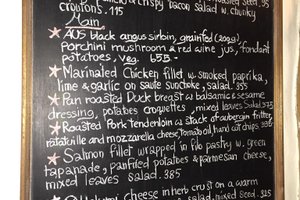 & crispy bacon salad w. chunky
croutons. 115
Main
AUS black angus sirloin, grainfed (200g)
porchini mushroom & red wine jus, fondant
potatoes, veg. 655-
Marinated Chicken fillet w. smoked paprika,
lime & garlic on saute sunchoke, salad. 355
Pan roasted Duck breast w. balsamic & sesame
dressing, potatoes croquettes, mixed leaves salad. 375
Roasted Pork tenderloin w. stack of aubergin fritter,
ratatuille and mozzarella cheese, tomato oil, hand cut chips. 395
Salmon fillet wrapped in filo pastry w. green
tapanade, panfried potatoes & parmesan cheese,
mixed leaves salad. 385
cheese in herb crust on a warm